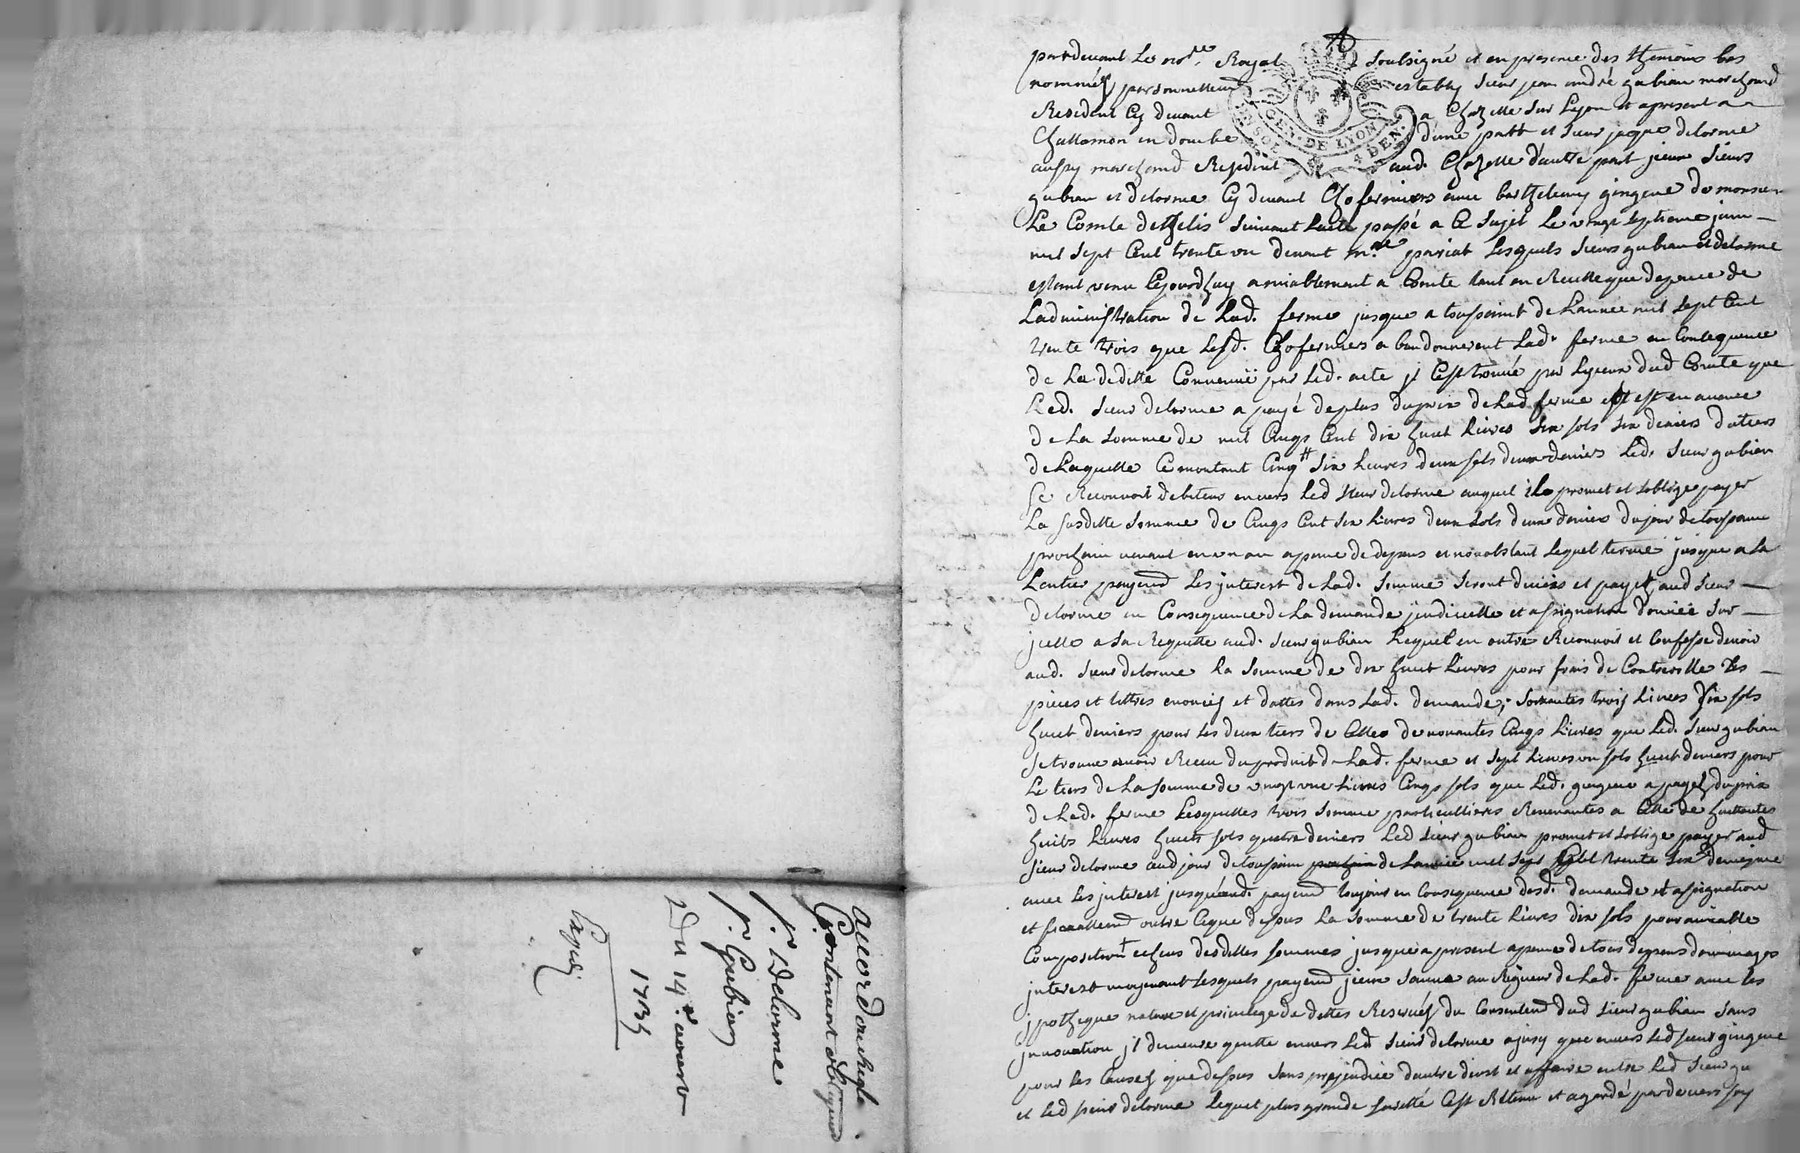 pardevant Le no.re Royal soubsigné et en presence des thémoins bas
nommés personnellem establis sieur jean andré gubian marchand
Resident Cy devant a Chazelle sur Lyon et apresent a
Challamon en dombe d'une part et sieur jaque delorme
aussy marchand Resident aud. Chazelle d'autre part jceux sieurs
gubian et delorme Cy devant Cofermiers avec barthelemy gingene de monsieur
Le Comte de thelis suivant lacte passé a Ce sujet Le vingt septieme juin
mil sept Cent trente un devant m.re pariat Lesquels sieurs gubian et delorme
estant venu Cejourdhuy amiablement a Comte tant en Recette que depence de
Ladministration de Lad. ferme jusque a toussaint de Lannée mil sept Cent
trente trois que Lesd. Cofermiers abandonnerent Lad. ferme en Consequence
de La deditte Convenuë par Led. acte jl Cest trouvé par dud Comte que
Led. sieur delorme a payé de plus du prix de Lad ferme et est en avance
de La somme de mil Cinqs Cent dix huit Livres six sols six deniers du tiers
de Laquelle Ce montant Cinq tt six Livres deux sols deux deniers Led. sieur gubian
se Reconnoit debiteur envers Led sieur delorme auquel il promet et soblige payer
La susditte somme de Cinqs Cent six Livres deux sols deux deniers du jour de toussaint
prochain venant en un an apeine de depens et nonobstant Lequel terme jusque a La
Lentier payem Les jnterest de Lad. somme seront deues et payes aud sieur
delorme en Consequence de La demande juridicelle et assignation donnée sur
jcelle a sa Requette aud. sieur gubian Lequel en outre Reconnoit et Confesse devoir
aud. sieur delorme La somme de dix huit Livres pour frais de Controlle des
pieces et tittres enoncés et dattés dans Lad. demande; soixantes trois Livres six sols
huit deniers pour Les deux tiers de Celles de nonantes Cinqs Livres que Led. sieur gubian
se trouve avoir Receu du produit de Lad. ferme et sept Livres un sols huit deniers pour
Le tiers de La somme de vingt une Livres Cinqs sols que Led. gingene a payés du prix
de Lad. ferme Lesquelles trois somme particullieres Revenantes a Celle de huittantes
huits Livres huits sols quatre deniers Led sieur gubian promet et soblige payer aud
sieur delorme aud jour de toussain de Lannée mil sept Cent trente six de mesme
avec Les jnterest jusqu'aud. payem toujour en Consequence desd. demande et assignation
et finallem outre Ceque dessus La somme de trente Livres dix sols pour amiable
Composition desdittes sommes jusque a present apeine de tous depens dommages
jnterest moyenant Lesquels payem jceux sauve au Rigueur de Lad. ferme avec les
jpotheque nature et privilege de dettes Reservés du Consentem dud sieur gubian sans
jnnovation jl demeure quitte envers Led sieur delorme ainsy que envers Led sieur gingene
pour les Causes que dessus sans prejudice dautre droit et affaire entre Led sieur gu
et Led sieur delorme Lequel plus grande sur Cest Retenu et a gardé pardevers soy
accord
Contenant obligaon
S.r Delorme
S.r Gubian
Du 14e aoust
1735